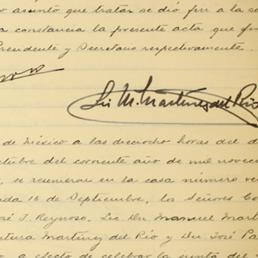 o asunto que tratar se dió fin a la se
a constancia la presente acta que fir
Presidente y Secretario respectivamente.
Lic M. Martínez del Río
de México a las dieciocho horas del d
ctubre del corriente año de mil novec
, se reunieron en la casa número ve
ada 16 de Septiembre, los Señores Co
sé J. Reynoso, Lic. Dn. Manuel Mart
ntura Martínez del Río y Dn. José Pa
a efecto de celebrar la junta del